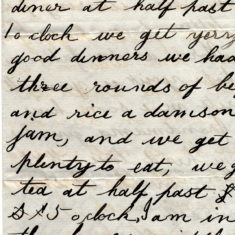 diner at half past
1 o clock we get very
good dinners we had
three rounds of be
and rice a damson
Jam, and we get
plenty to eat, we g
tea at half past
5 o clock, I am in